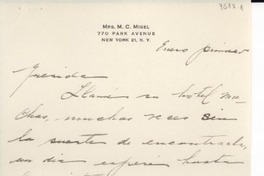 3012 1
MRS. M. C. MIGEL
770 PARK AVENUE
NEW YORK 21, N. Y.
Enero primero
Querida
Llamé su hotel mu-
chas, muchas veces sin
la suerte de encontrarla,
un día esperé hasta